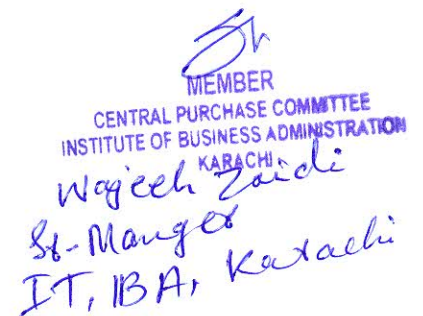 MEMBER
CENTRAL PURCHASE COMMITTEE
INSTITUTE OF BUSINESS ADMINISTRATION
KARACHI
Wajeeh Zaidi
Sr-Manger
IT, IBA, Karachi